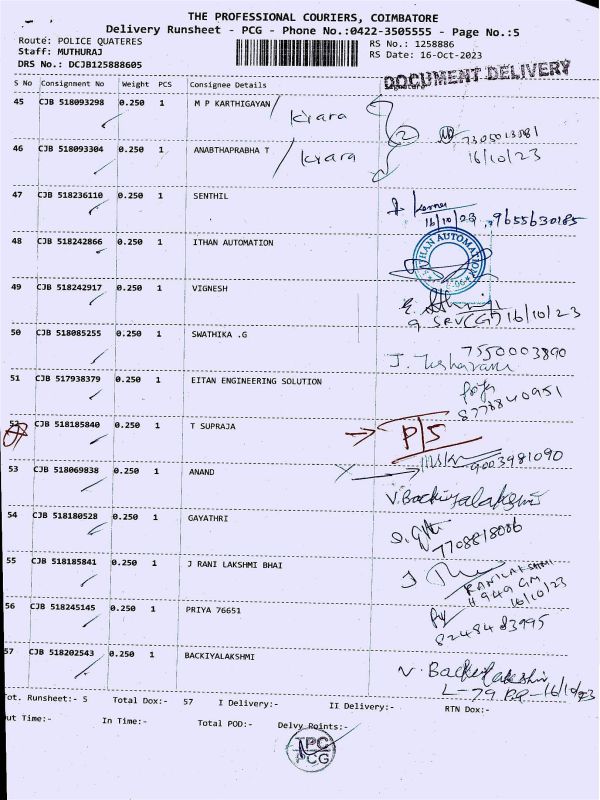 THE PROFESSIONAL COURIERS, COIMBATORE
Delivery Runsheet - PCG - Phone No.:0422-3505555 - Page No.:5
Route: POLICE QUATERES RS No.: 1258886
Staff: MUTHURAJ RS Date: 16-Oct-2023
DRS No.: DCJB125888605
DOCUMENT DELIVERY
S No Consignment No Weight PCS Consignee Details
45 CJB 518093298 0.250 1 M P KARTHIGAYAN / Kyara
2 7305013981
46 CJB 518093304 0.250 1 ANABTHAPRABHA T / Kyara 16/10/23
47 CJB 518236110 0.250 1 SENTHIL
16/10/23, 9655630185
48 CJB 518242866 0.250 1 ITHAN AUTOMATION
ITHAN AUTOMATION
49 CJB 518242917 0.250 1 VIGNESH
16/10/23
50 CJB 518085255 1 0.250 1 SWATHIKA .G
7550003890
51 CJB 517938379 0.250 1 EITAN ENGINEERING SOLUTION
8778840951
52 CJB 518185840 0.250 1 T SUPRAJA
P/5
9003981090
53 CJB 518069838 0.250 1 ANAND
V. Backiyalakshmi
54 CJB 518180528 0.250 1 GAYATHRI
7708818086
55 CJB 518185841 0.250 1 J RANI LAKSHMI BHAI
RANILAKSHMI
H 949 GM
16/10/23
56 CJB 518245145 0.250 1 PRIYA 76651
8248483995
57 CJB 518202543 0.250 1 BACKIYALAKSHMI
V. Backiyalakshmi
L-79 16/10/23
Tot. Runsheet:- 5 Total Dox:- 57 I Delivery:- II Delivery:- RTN Dox:-
Out Time:- In Time:- Total POD:- Delvy Points:-
TPC
PCG